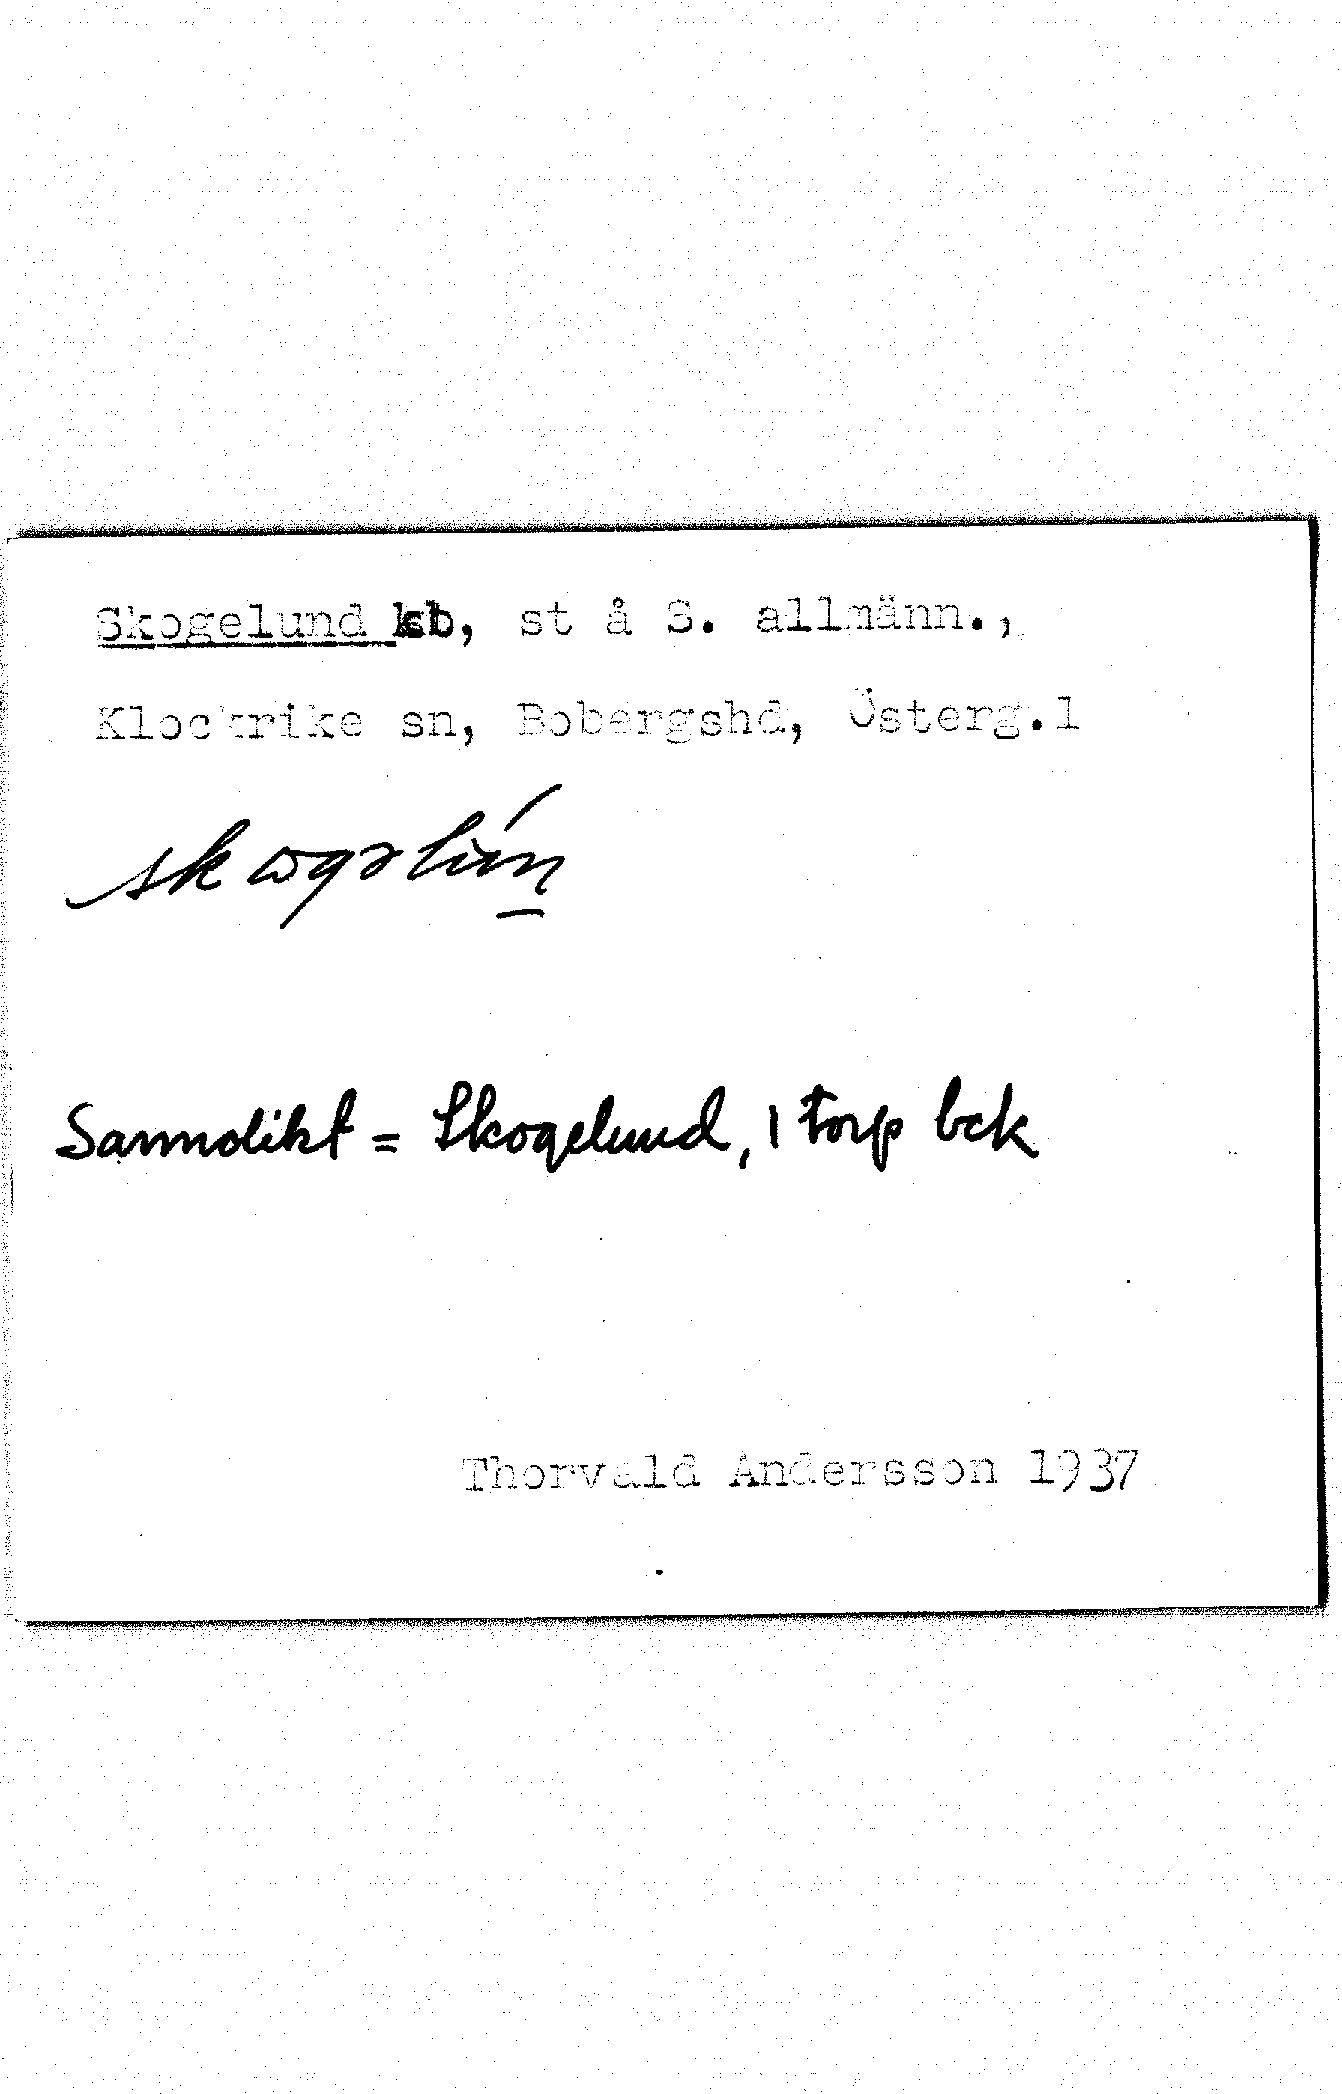 Skogelund ksb, st å S. allmänn.,
Klockrike sn, Bobergshd, Österg.l
skogəlún
Sannolikt = Skogelund, 1 torp bck
Thorvald Andersson 1937